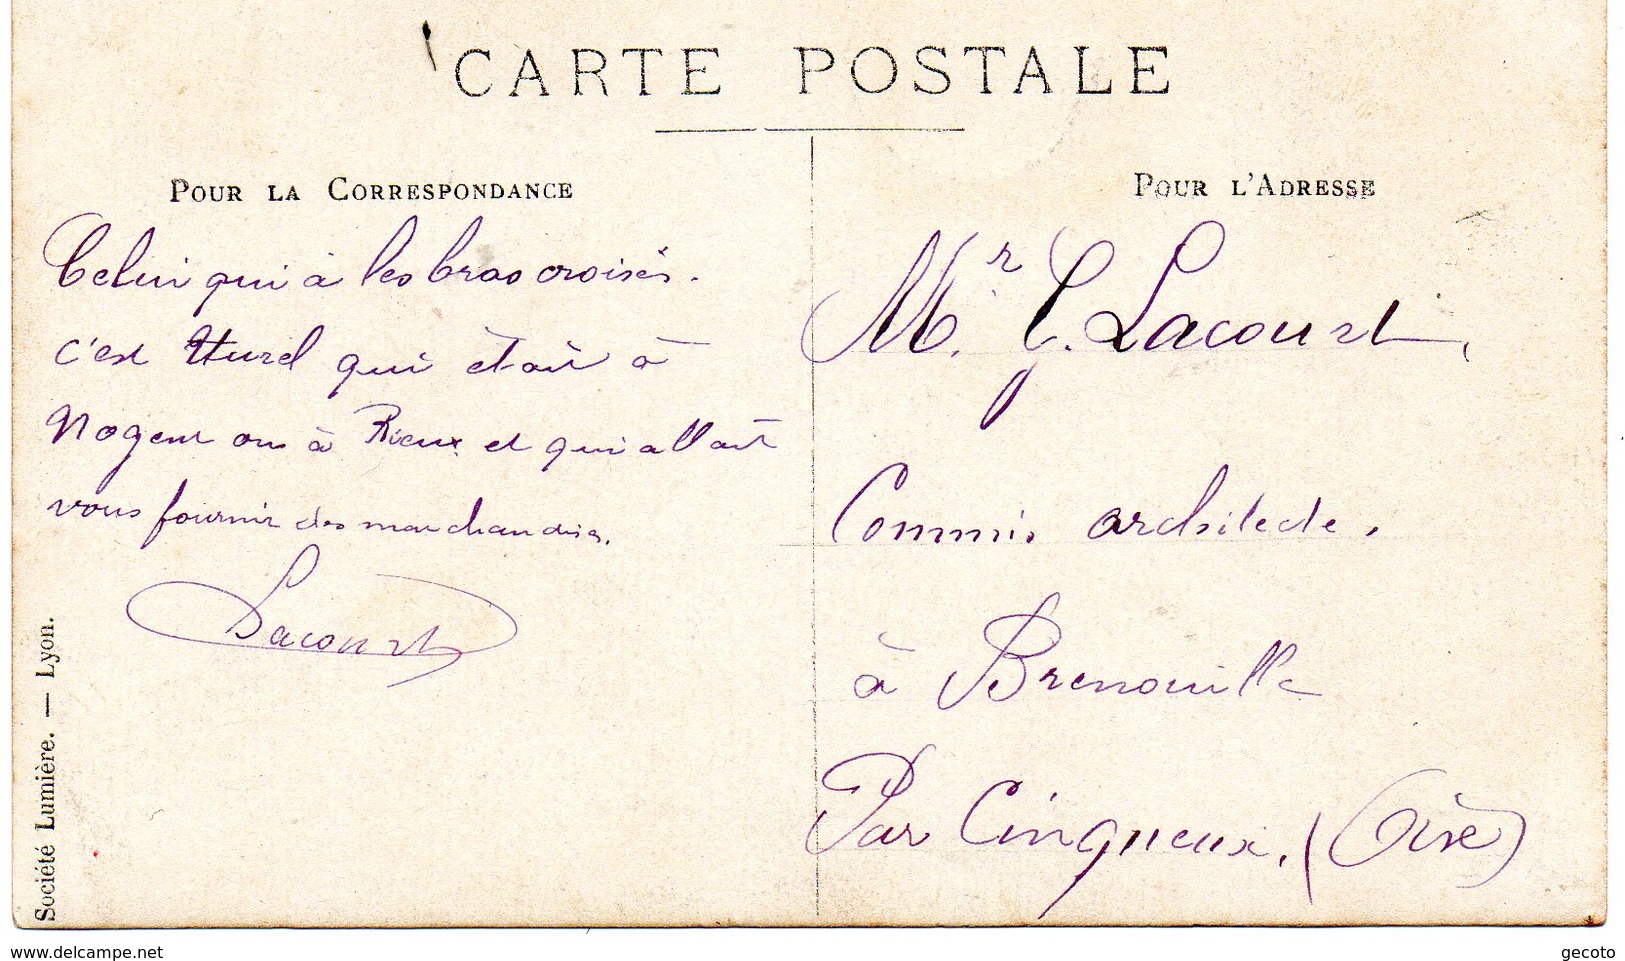 CARTE POSTALE
POUR LA CORRESPONDANCE
Celui qui à les bras croisés.
c'est Hurel qui était à
Nogent ou à Rieux et qui allait
vous fournir des marchandises.
Lacourt
Société Lumière. — Lyon.
POUR L'ADRESSE
Mr. G. Lacourt,
Commis architecte.
à Brenouille
Par Cinqueux. (Oise)
www.delcampe.net
gecoto